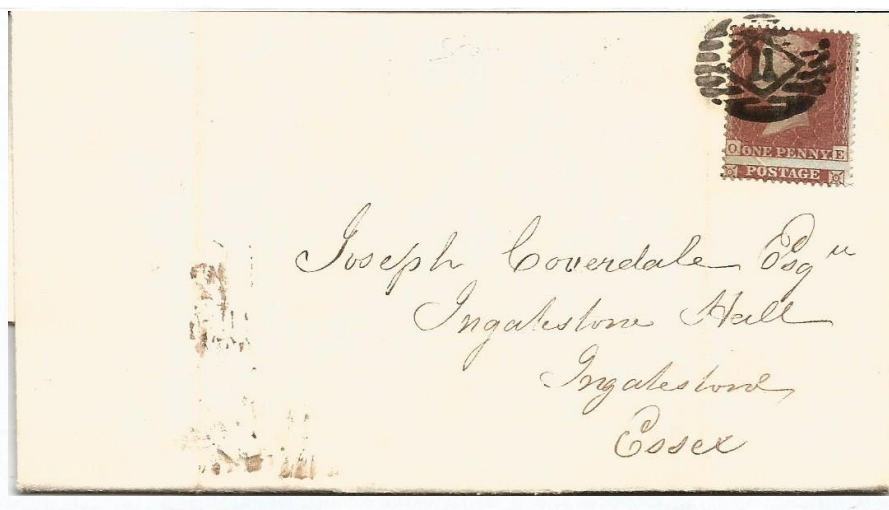 11
O ONE PENNY. E
POSTAGE
Joseph Coverdale Esqre
Ingatestone Hall
Ingatestone
Essex